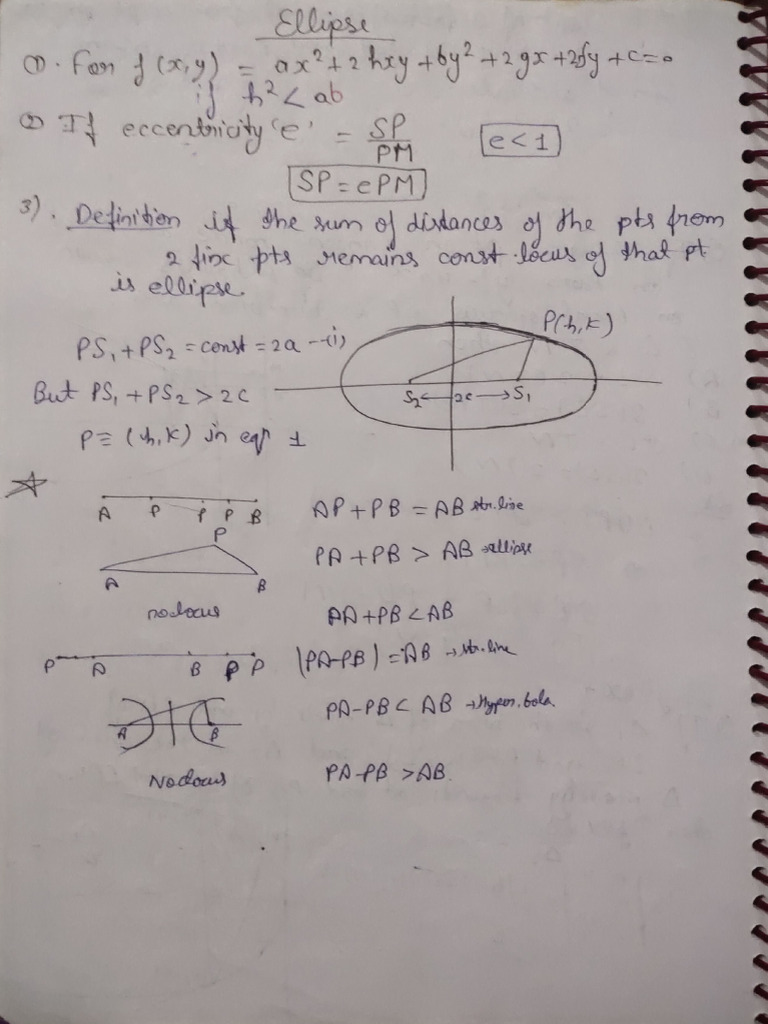 Ellipse
(1). For f(x,y) = ax²+2hxy+by²+2gx+2fy+c=0
if h²<ab
(2) If eccentricity 'e' = SP/PM e<1
SP=ePM
3). Definition if the sum of distances of the pts from
2 fix pts remains const locus of that pt
is ellipse.
P(h,k)
PS₁+PS₂=const=2a -(i)
But PS₁+PS₂>2c
S₂ ←2c→ S₁
P≡(h,k) in eqⁿ 1
A P P P B AP+PB=AB str.line
P
A B PA+PB > AB →ellipse
no locus AP+PB<AB
P A B P P |PA-PB|=AB → str.line
A B PA-PB< AB → Hyper.bola.
No locus PA-PB >AB.